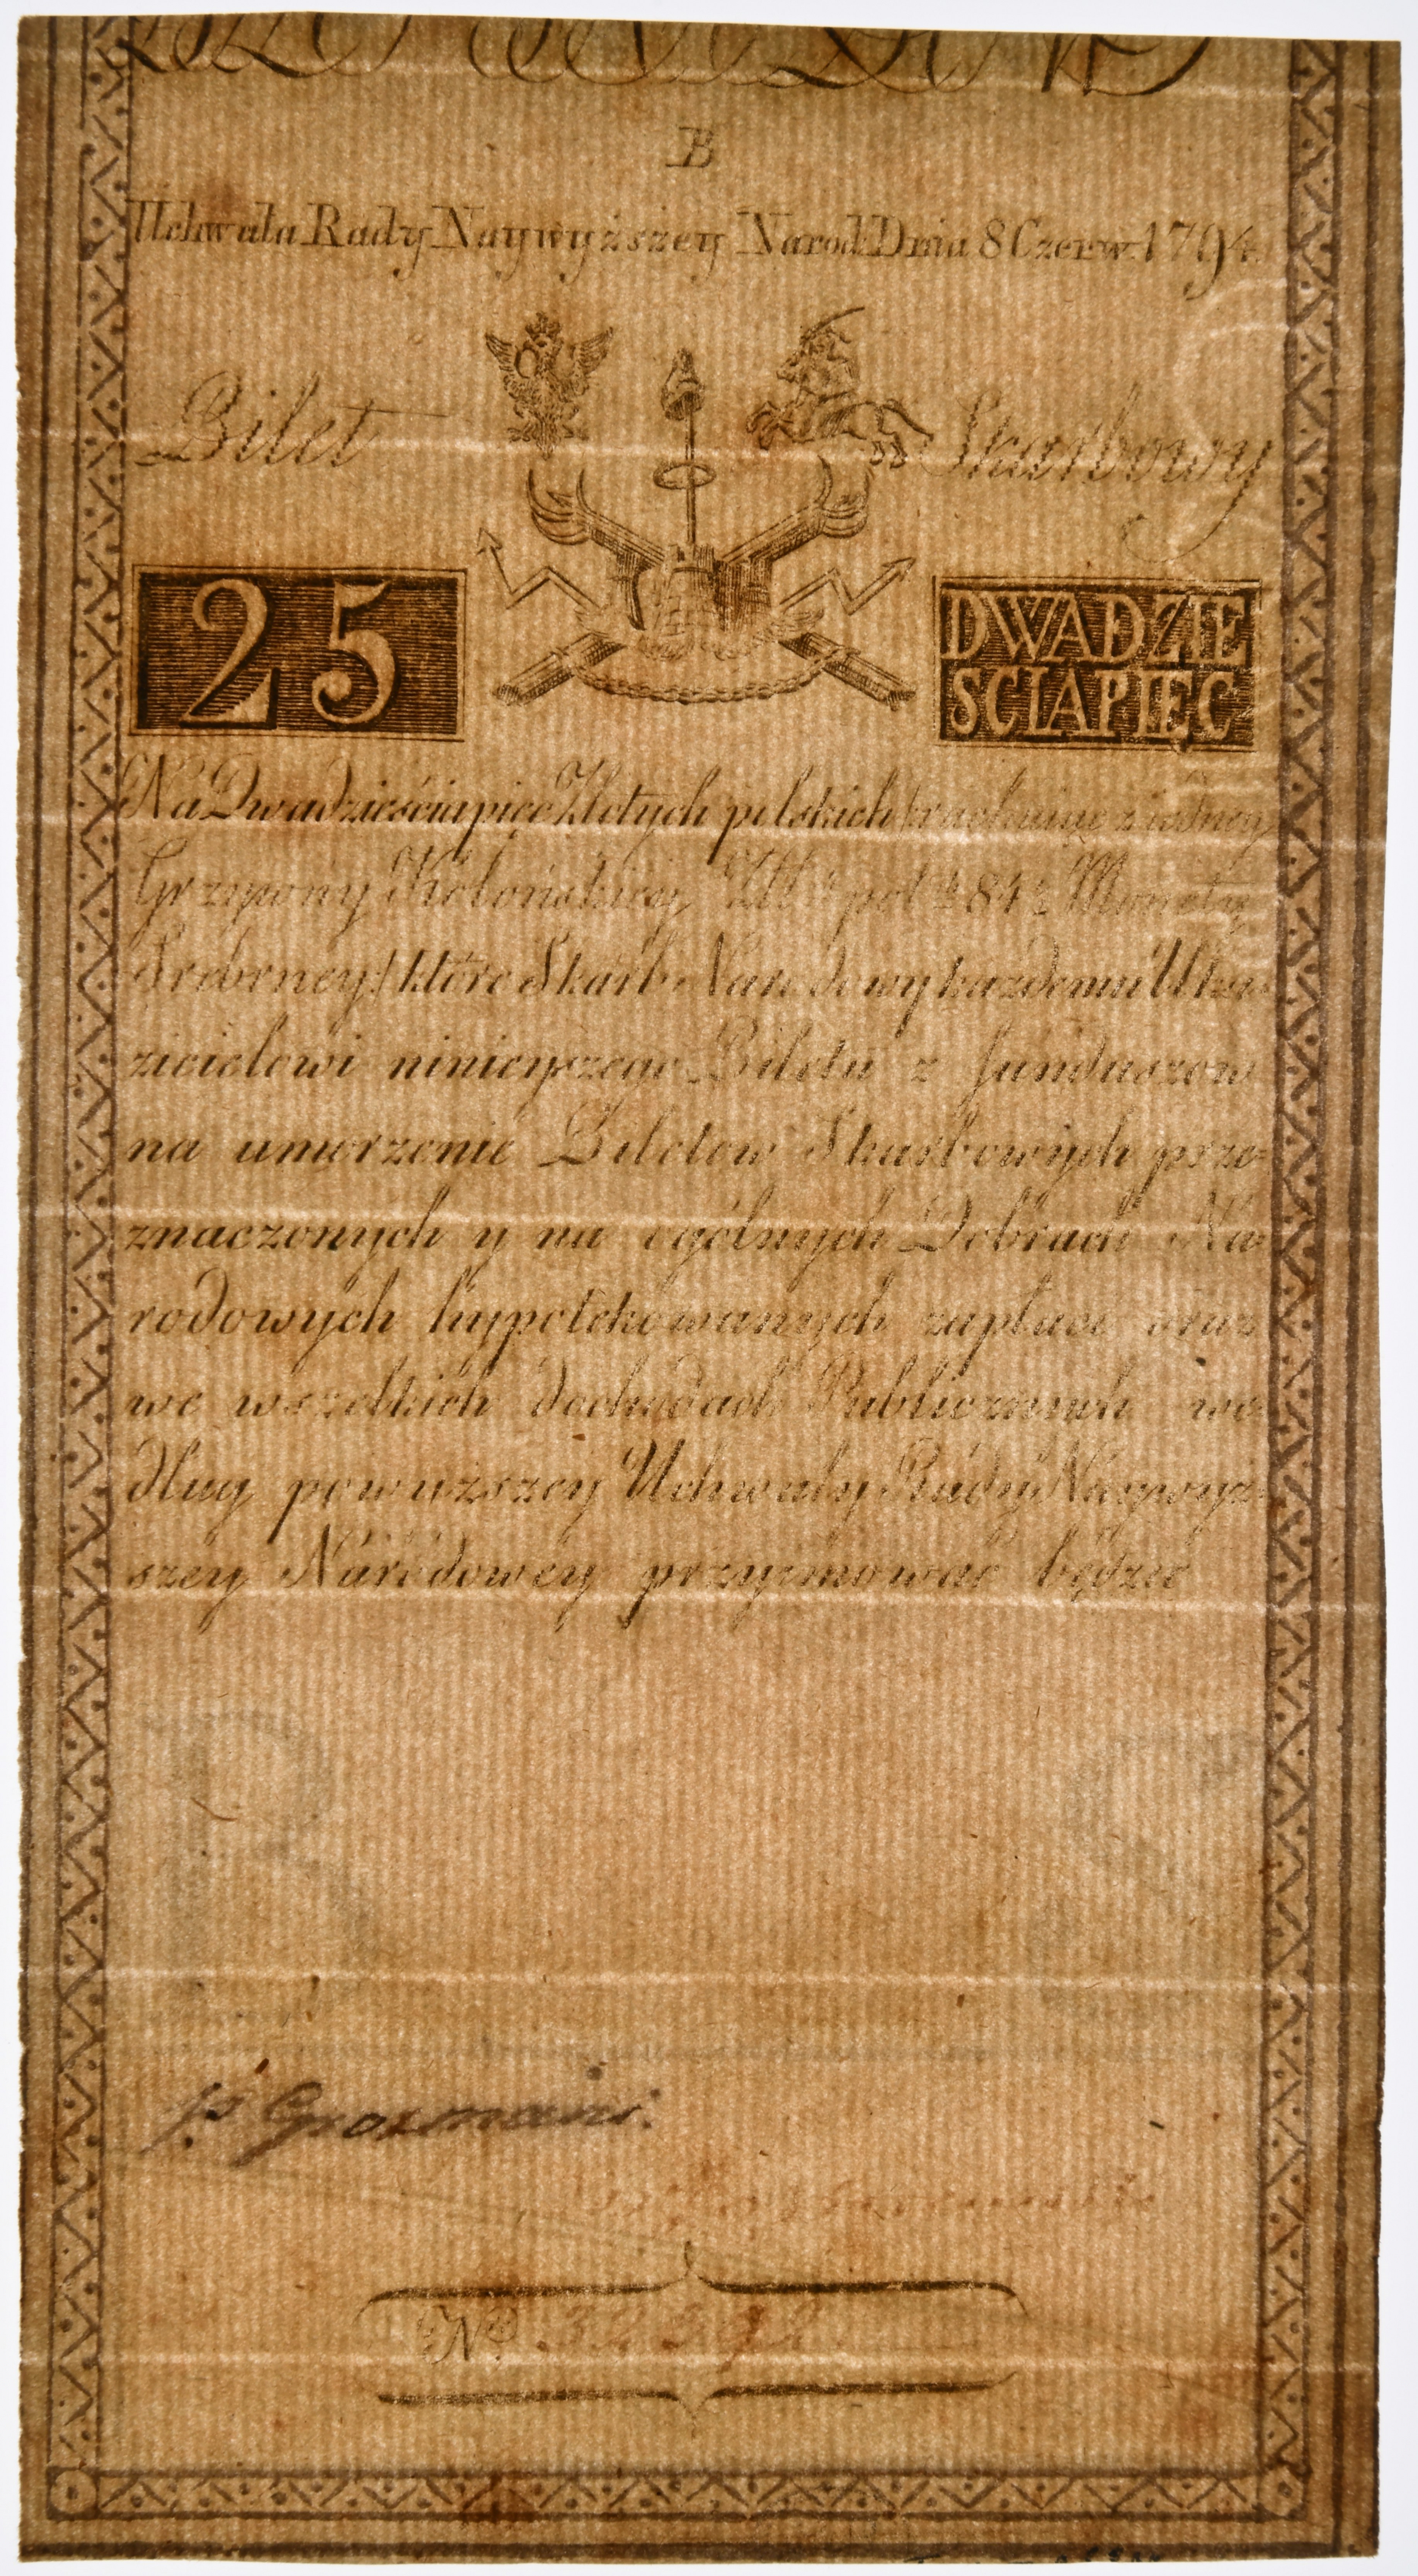 B
Uchwała Rady Naywyższey Narod: Dnia 8 Czerw: 1794.
Bilet Skarbowy
25
DWADZIE
SCIAPIĘC
Na Dwadzieściapięc Złotych polskich /rachuiąc z iedney
Grzywny Kolońskiey Złł: pol: 84½ Monety
Srebrney/ które Skarb Narodowy każdemu Uka=
zicielowi ninieyszego Biletu z funduszow
na umorzenie Biletow Skarbowych prze=
znaczonych y na ogólnych Dobrach Na=
rodowych hypotekowanych zapłaci oraz
we wszelkich dochodach Publicznych we=
dług powyższey Uchwały Rady Naywyż=
szey Narodowey przyimować będzie
Nro 32392